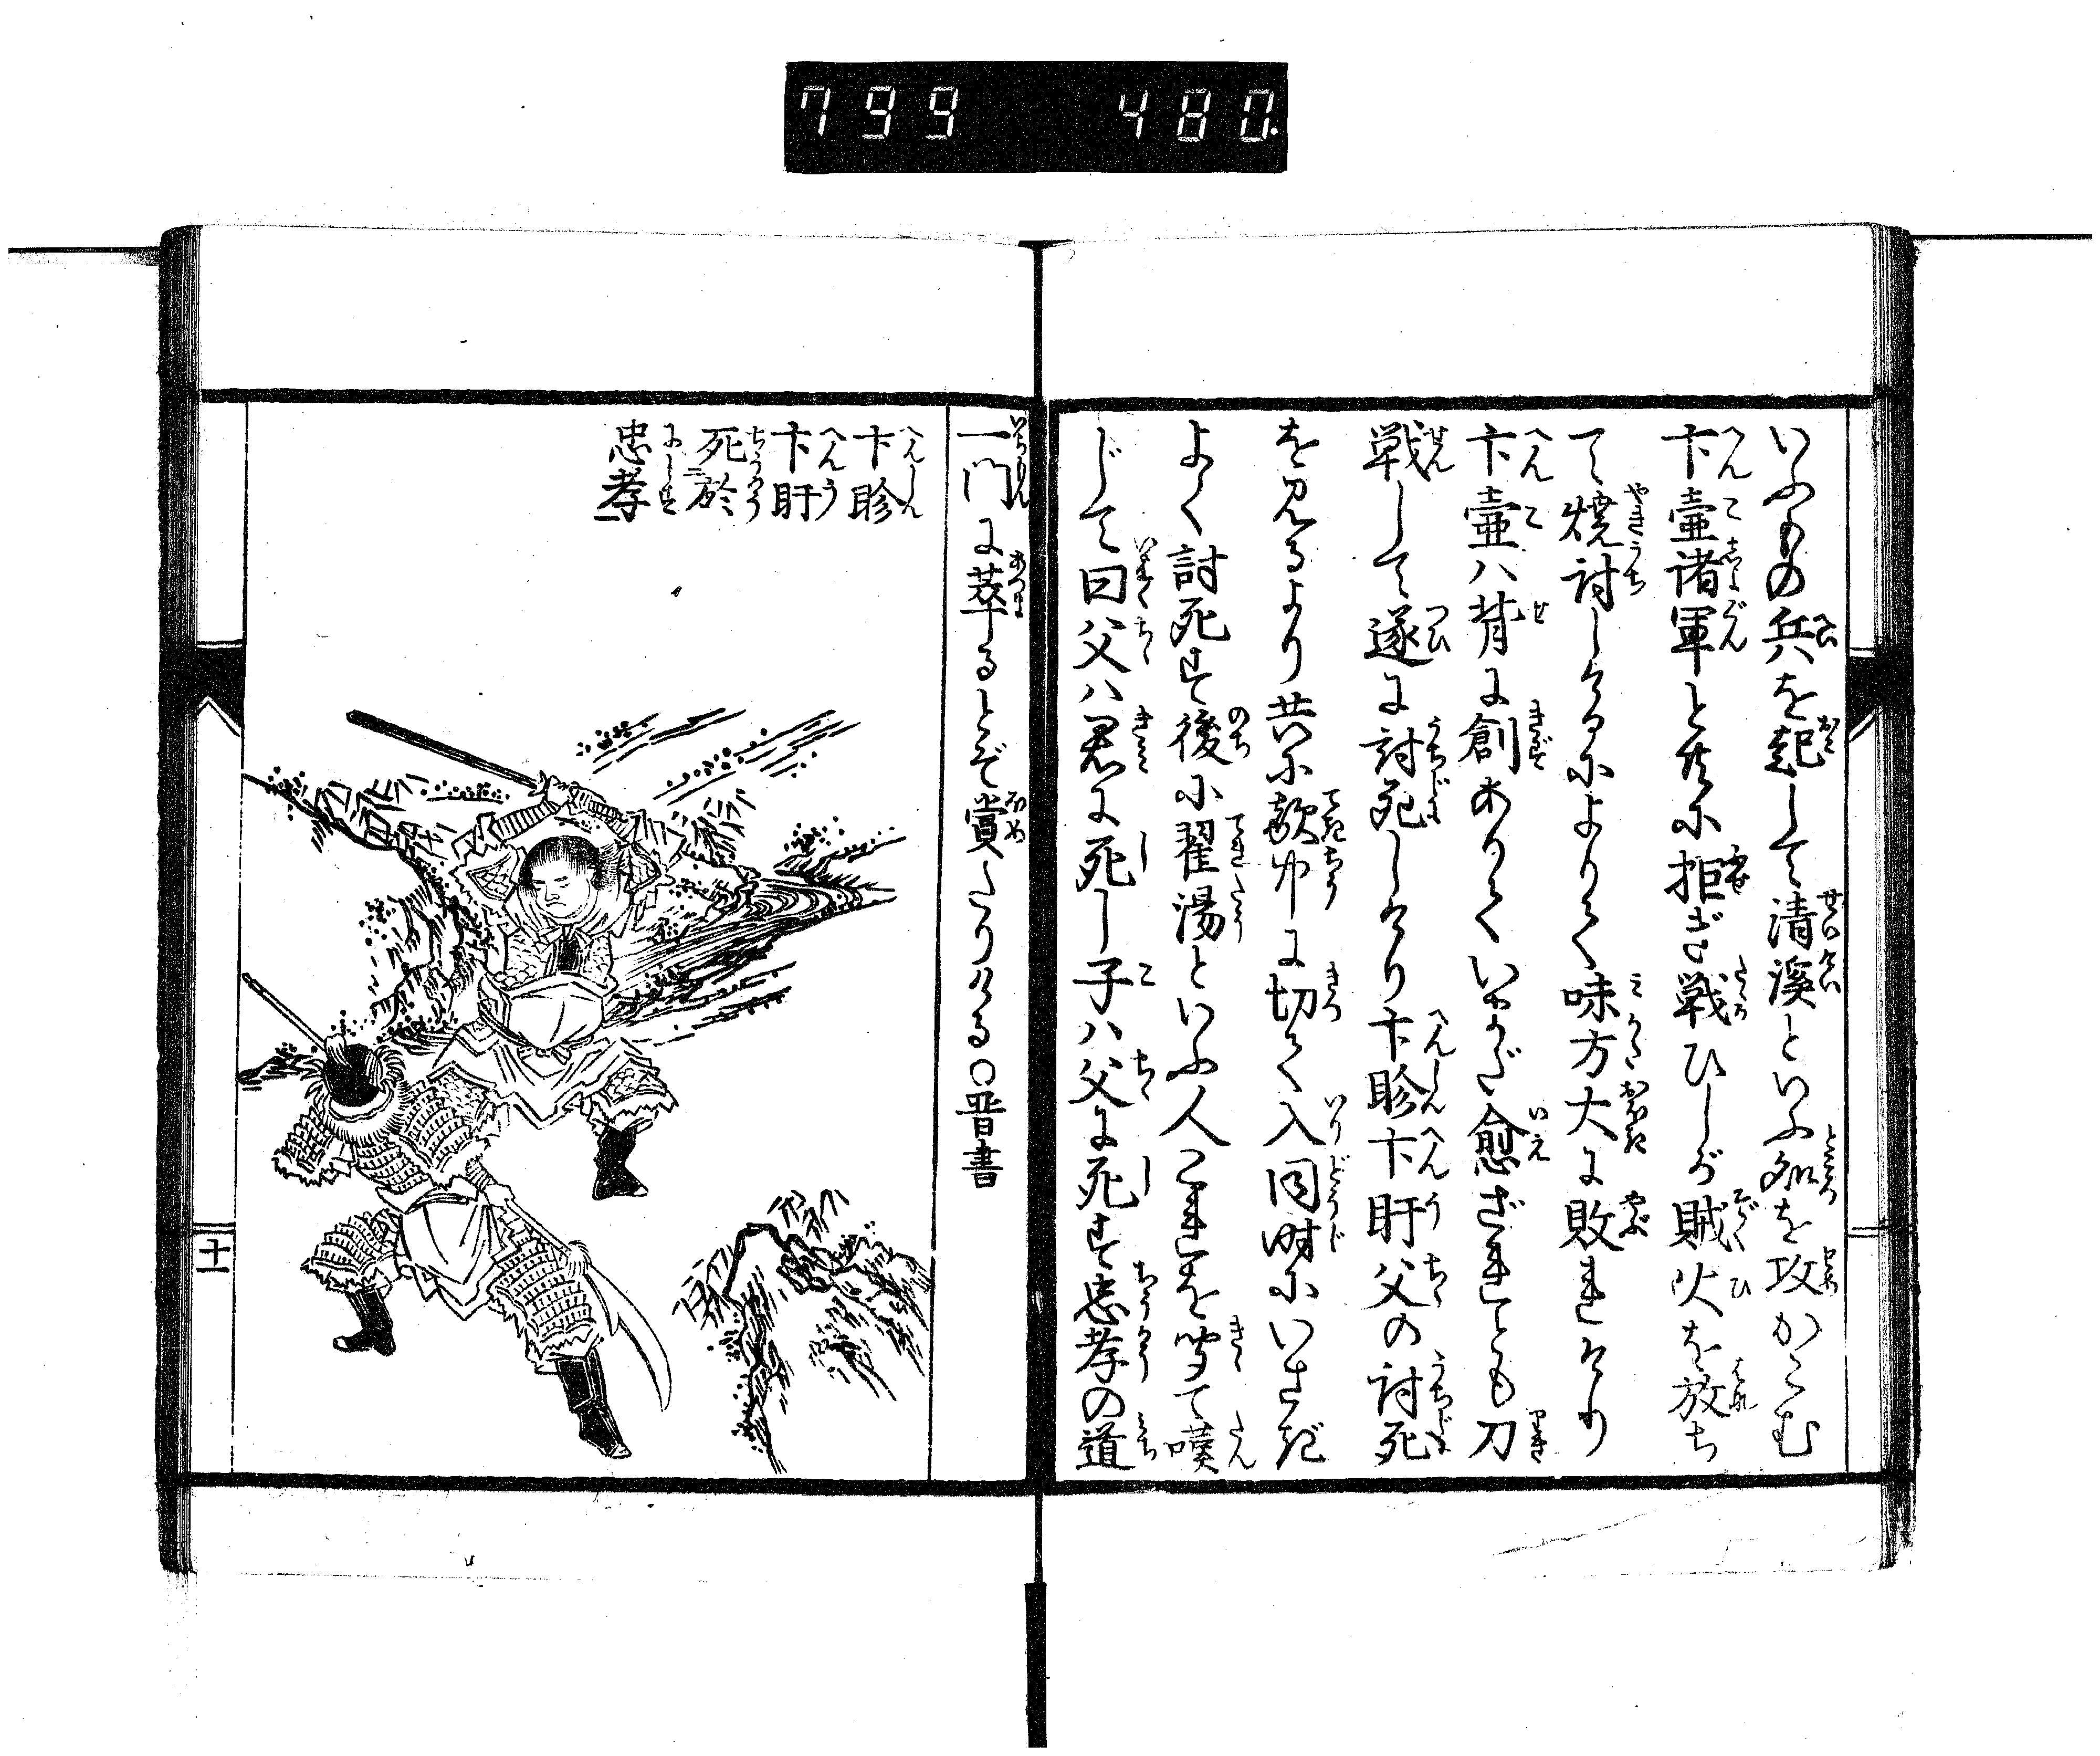 799 480.
いふもの兵を起して清溪といふ処を攻かこむ
卞壷諸軍と共に拒ぎ戦ひしが賊火を放ち
て焼討しけるによりて味方大に敗れけり
卞壷ハ背に創ありていまだ愈ざれとも刀
戦して遂に討死しけり卞眕卞盱父の討死
を見るより共に敵中に切て入同時にいさぎ
よく討死す後に翟湯といふ人これを聞て嘆
じて曰父ハ君に死し子ハ父に死す忠孝の道
一門に萃るとぞ賞たりける○晋書
卞眕
卞盱
死於
忠孝
十一